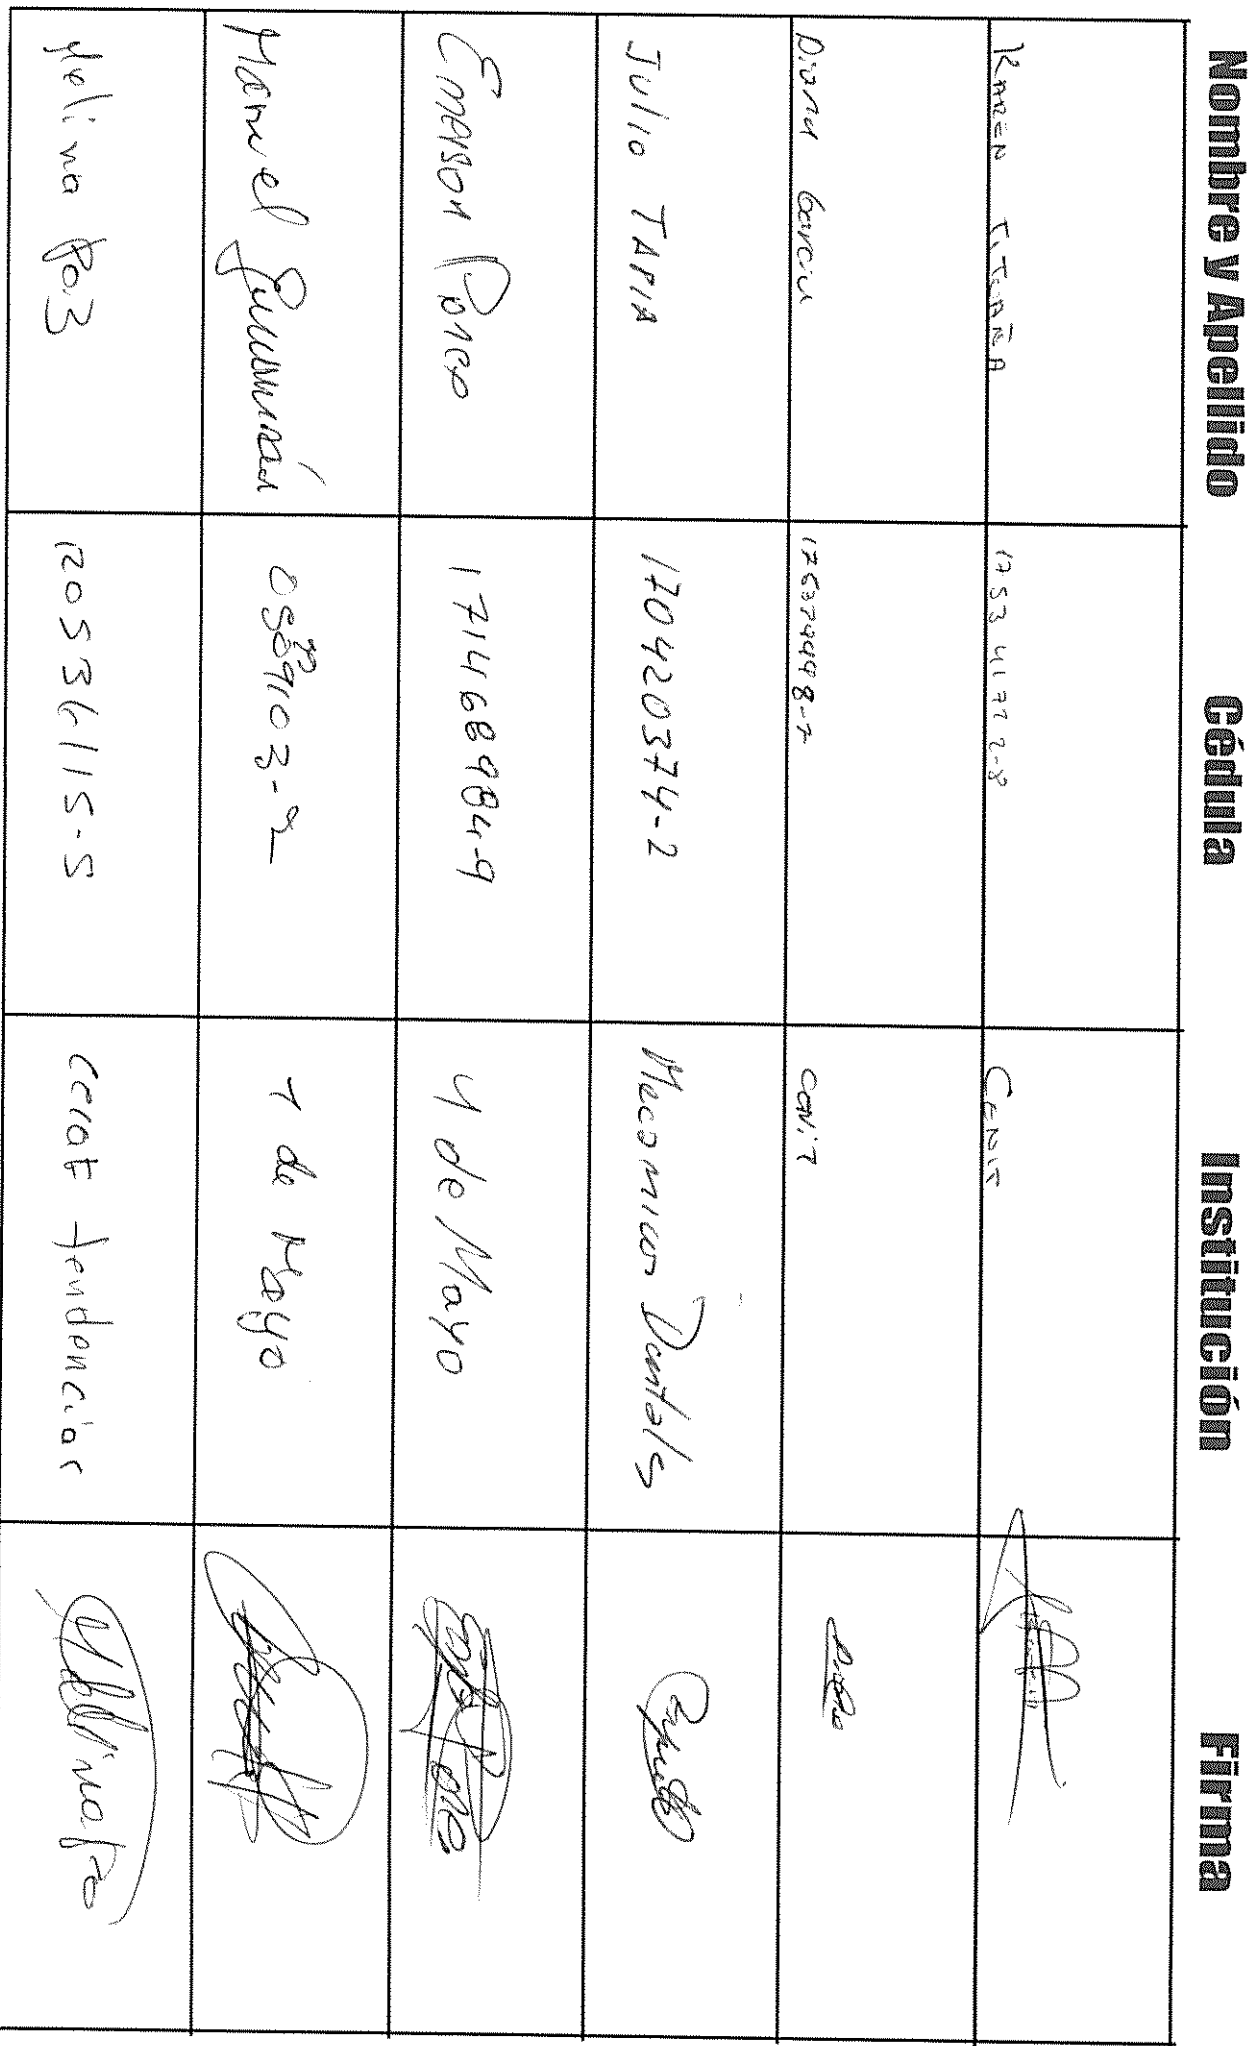 Nombre y Apellido Cédula Institución Firma
KAREN TITUAÑA 1753417722-8 CENIT
Diana Garcia CENIT Diana
Julio TAPIA 170420374-2 Mecanicos Dentales
Emerson Ponce 171468984-9 4 de Mayo
Manuel Guzmán 1 de Mayo
Melina Paz 120536115-5 Cerat tendenciar Melina Pa